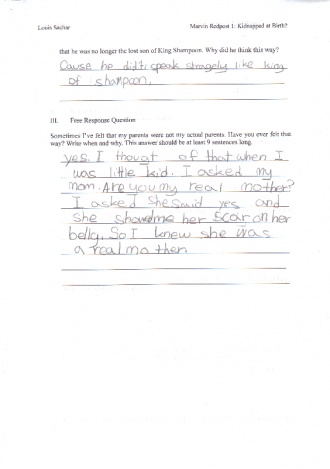 Louis Sachar Marvin Redpost 1: Kidnapped at Birth?
that he was no longer the lost son of King Shampoon. Why did he think this way?
Cause he did'ti speak stragely like king
of shampoon.
III. Free Response Question
Sometimes I've felt that my parents were not my actual parents. Have you ever felt that
way? Write when and why. This answer should be at least 9 sentences long.
yes. I thougt of that when I
was little kid. I asked my
mom. Are you my real mother?
I asked She said yes and
she showdme her scar on her
belly. So I knew she was
a real mother